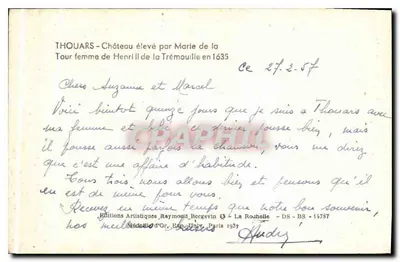 THOUARS - Château élevé par Marie de la
Tour femme de Henri II de la Trémouille en 1635
Ce 27.2.57
Chers Suzanne et Marcel
Voici bientôt quinze jours que je suis à Thouars avec
ma femme et ce dernier pousse bien, mais
il pousse aussi parfois la chanson, vous me direz
que c'est une affaire d'habitude.
Tous trois nous allons bien et pensons qu'il
en est de même pour vous.
Recevez en même temps que notre bon souvenir,
Editions Artistiques Raymond Bergevin - La Rochelle - DS - DS - 14787
nos meilleurs baisers
Paris 1937
André